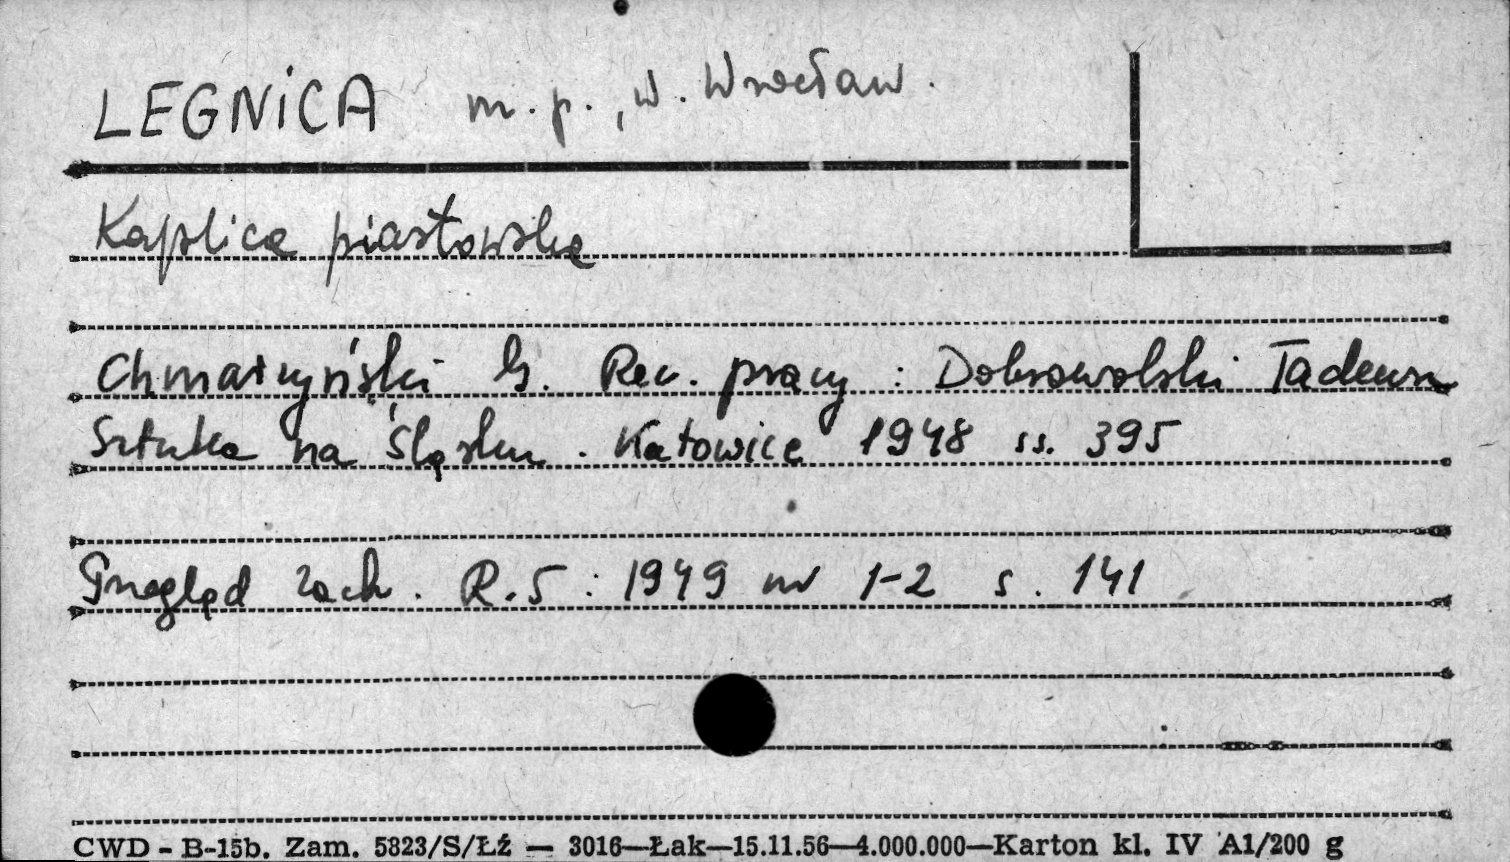 LEGNICA m.p., w. Wrocław.
Kaplica piastowska
Chmarzyński G. Rec. pracy : Dobrowolski Tadeusz
Sztuka na Śląsku. Katowice 1948 ss. 395
Przegląd Zach. R.5 : 1949 nr 1-2 s. 141
CWD - B-15b. Zam. 5823/S/Łź — 3016—Łak—15.11.56—4.000.000—Karton kl. IV A1/200 g